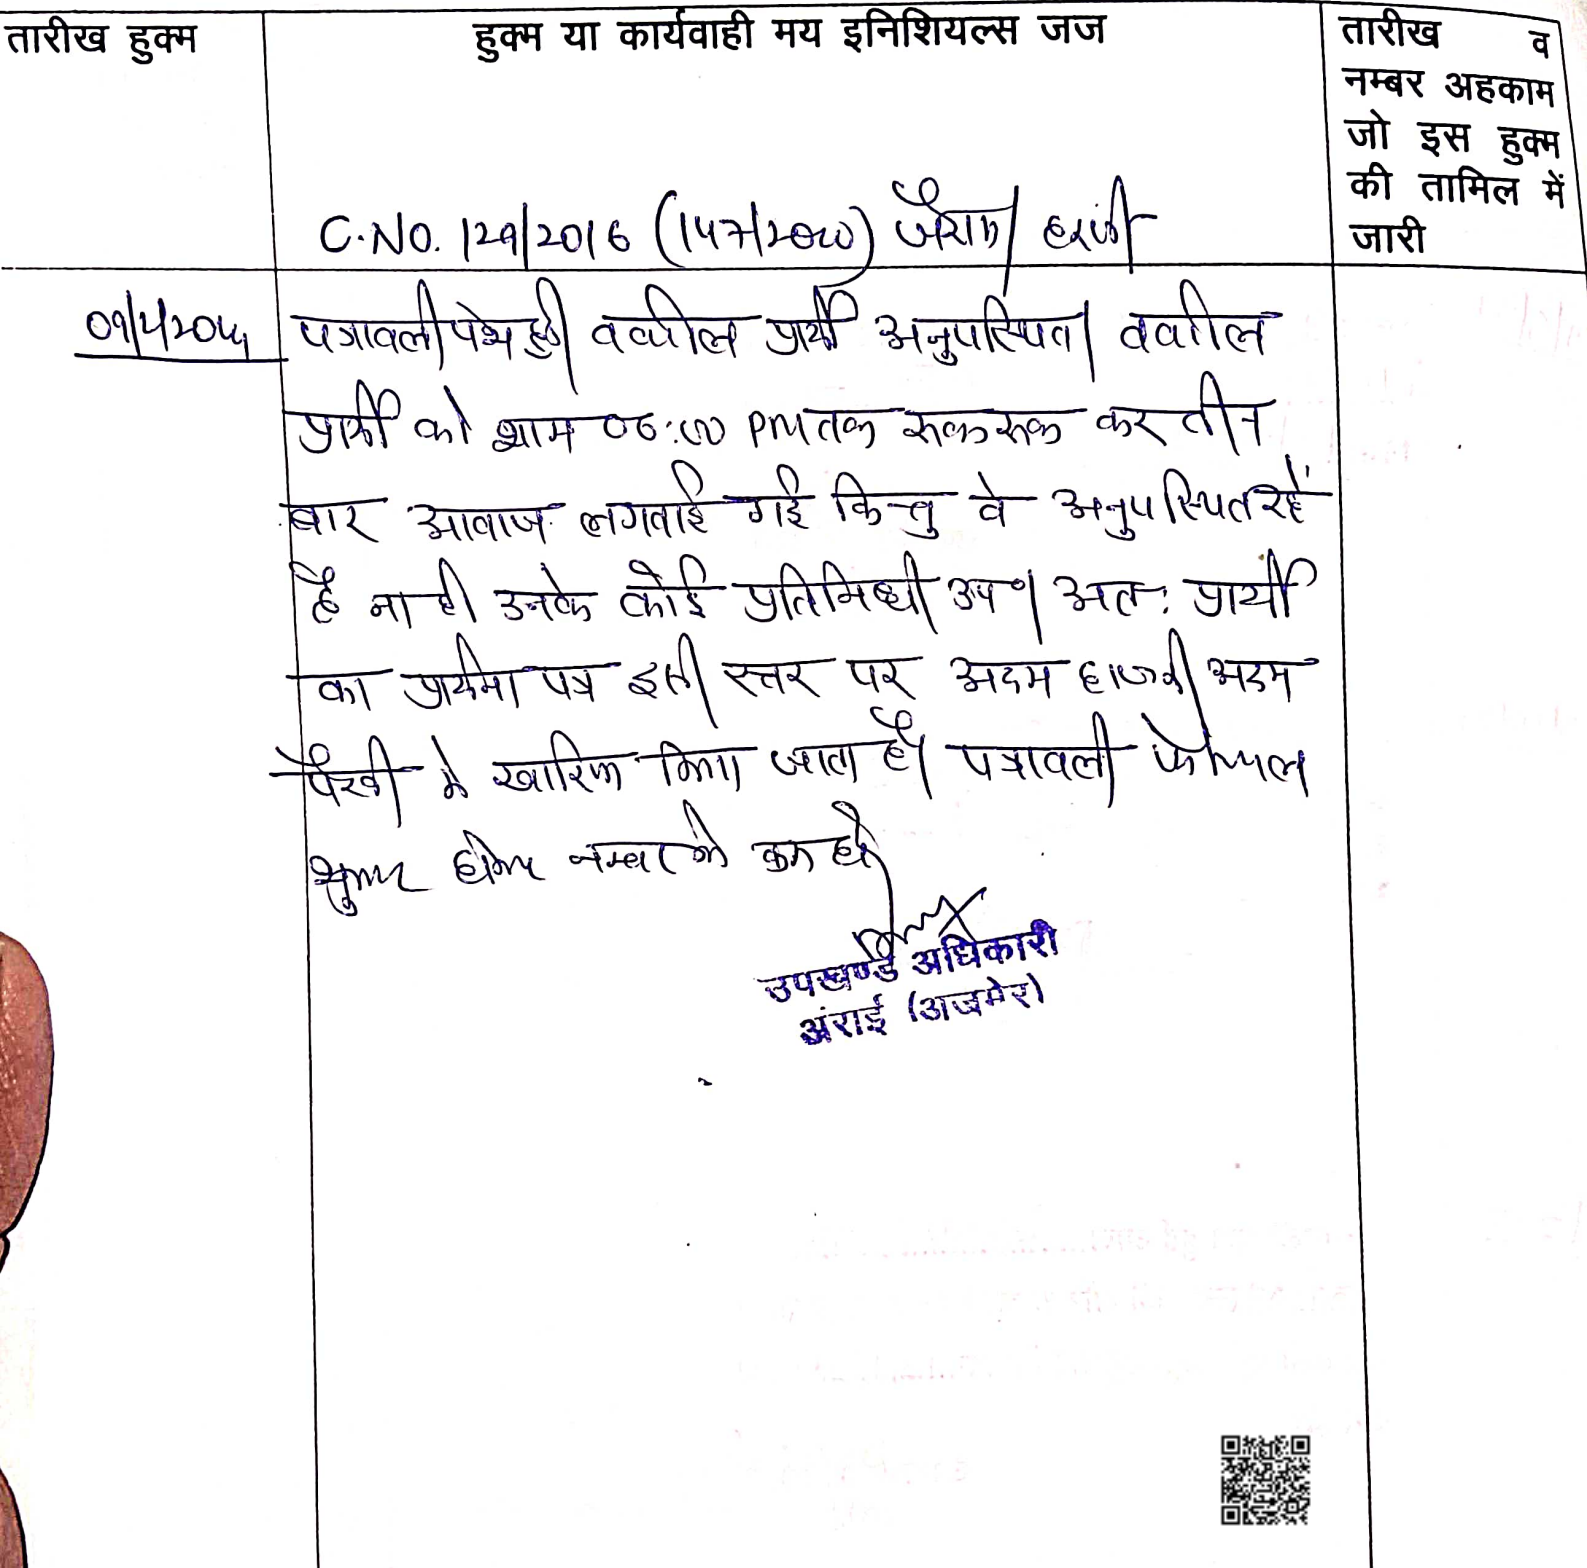 तारीख हुक्म
हुक्म या कार्यवाही मय इनिशियल्स जज
तारीख व
नम्बर अहकाम
जो इस हुक्म
की तामिल में
जारी
C.NO. 129/2016 (147/2020) जैराम/
पत्रावली पेश हुई। वकील प्रार्थी अनुपस्थित। वकील
प्रार्थी को शाम 06:00 PM तक रूक रूक कर तीन
बार आवाज लगवाई गई किन्तु वे अनुपस्थित रहे
है ना ही उनके कोई प्रतिनिधी उप०। अतः प्रार्थी
का प्रार्थना पत्र इसी स्तर पर अदम हाजरी अदम
पैरवी मे खारिज किया जाता है। पत्रावली फैसल
शुमार होकर नम्बर से कम हो।
उपखण्ड अधिकारी
अंराई (अजमेर)